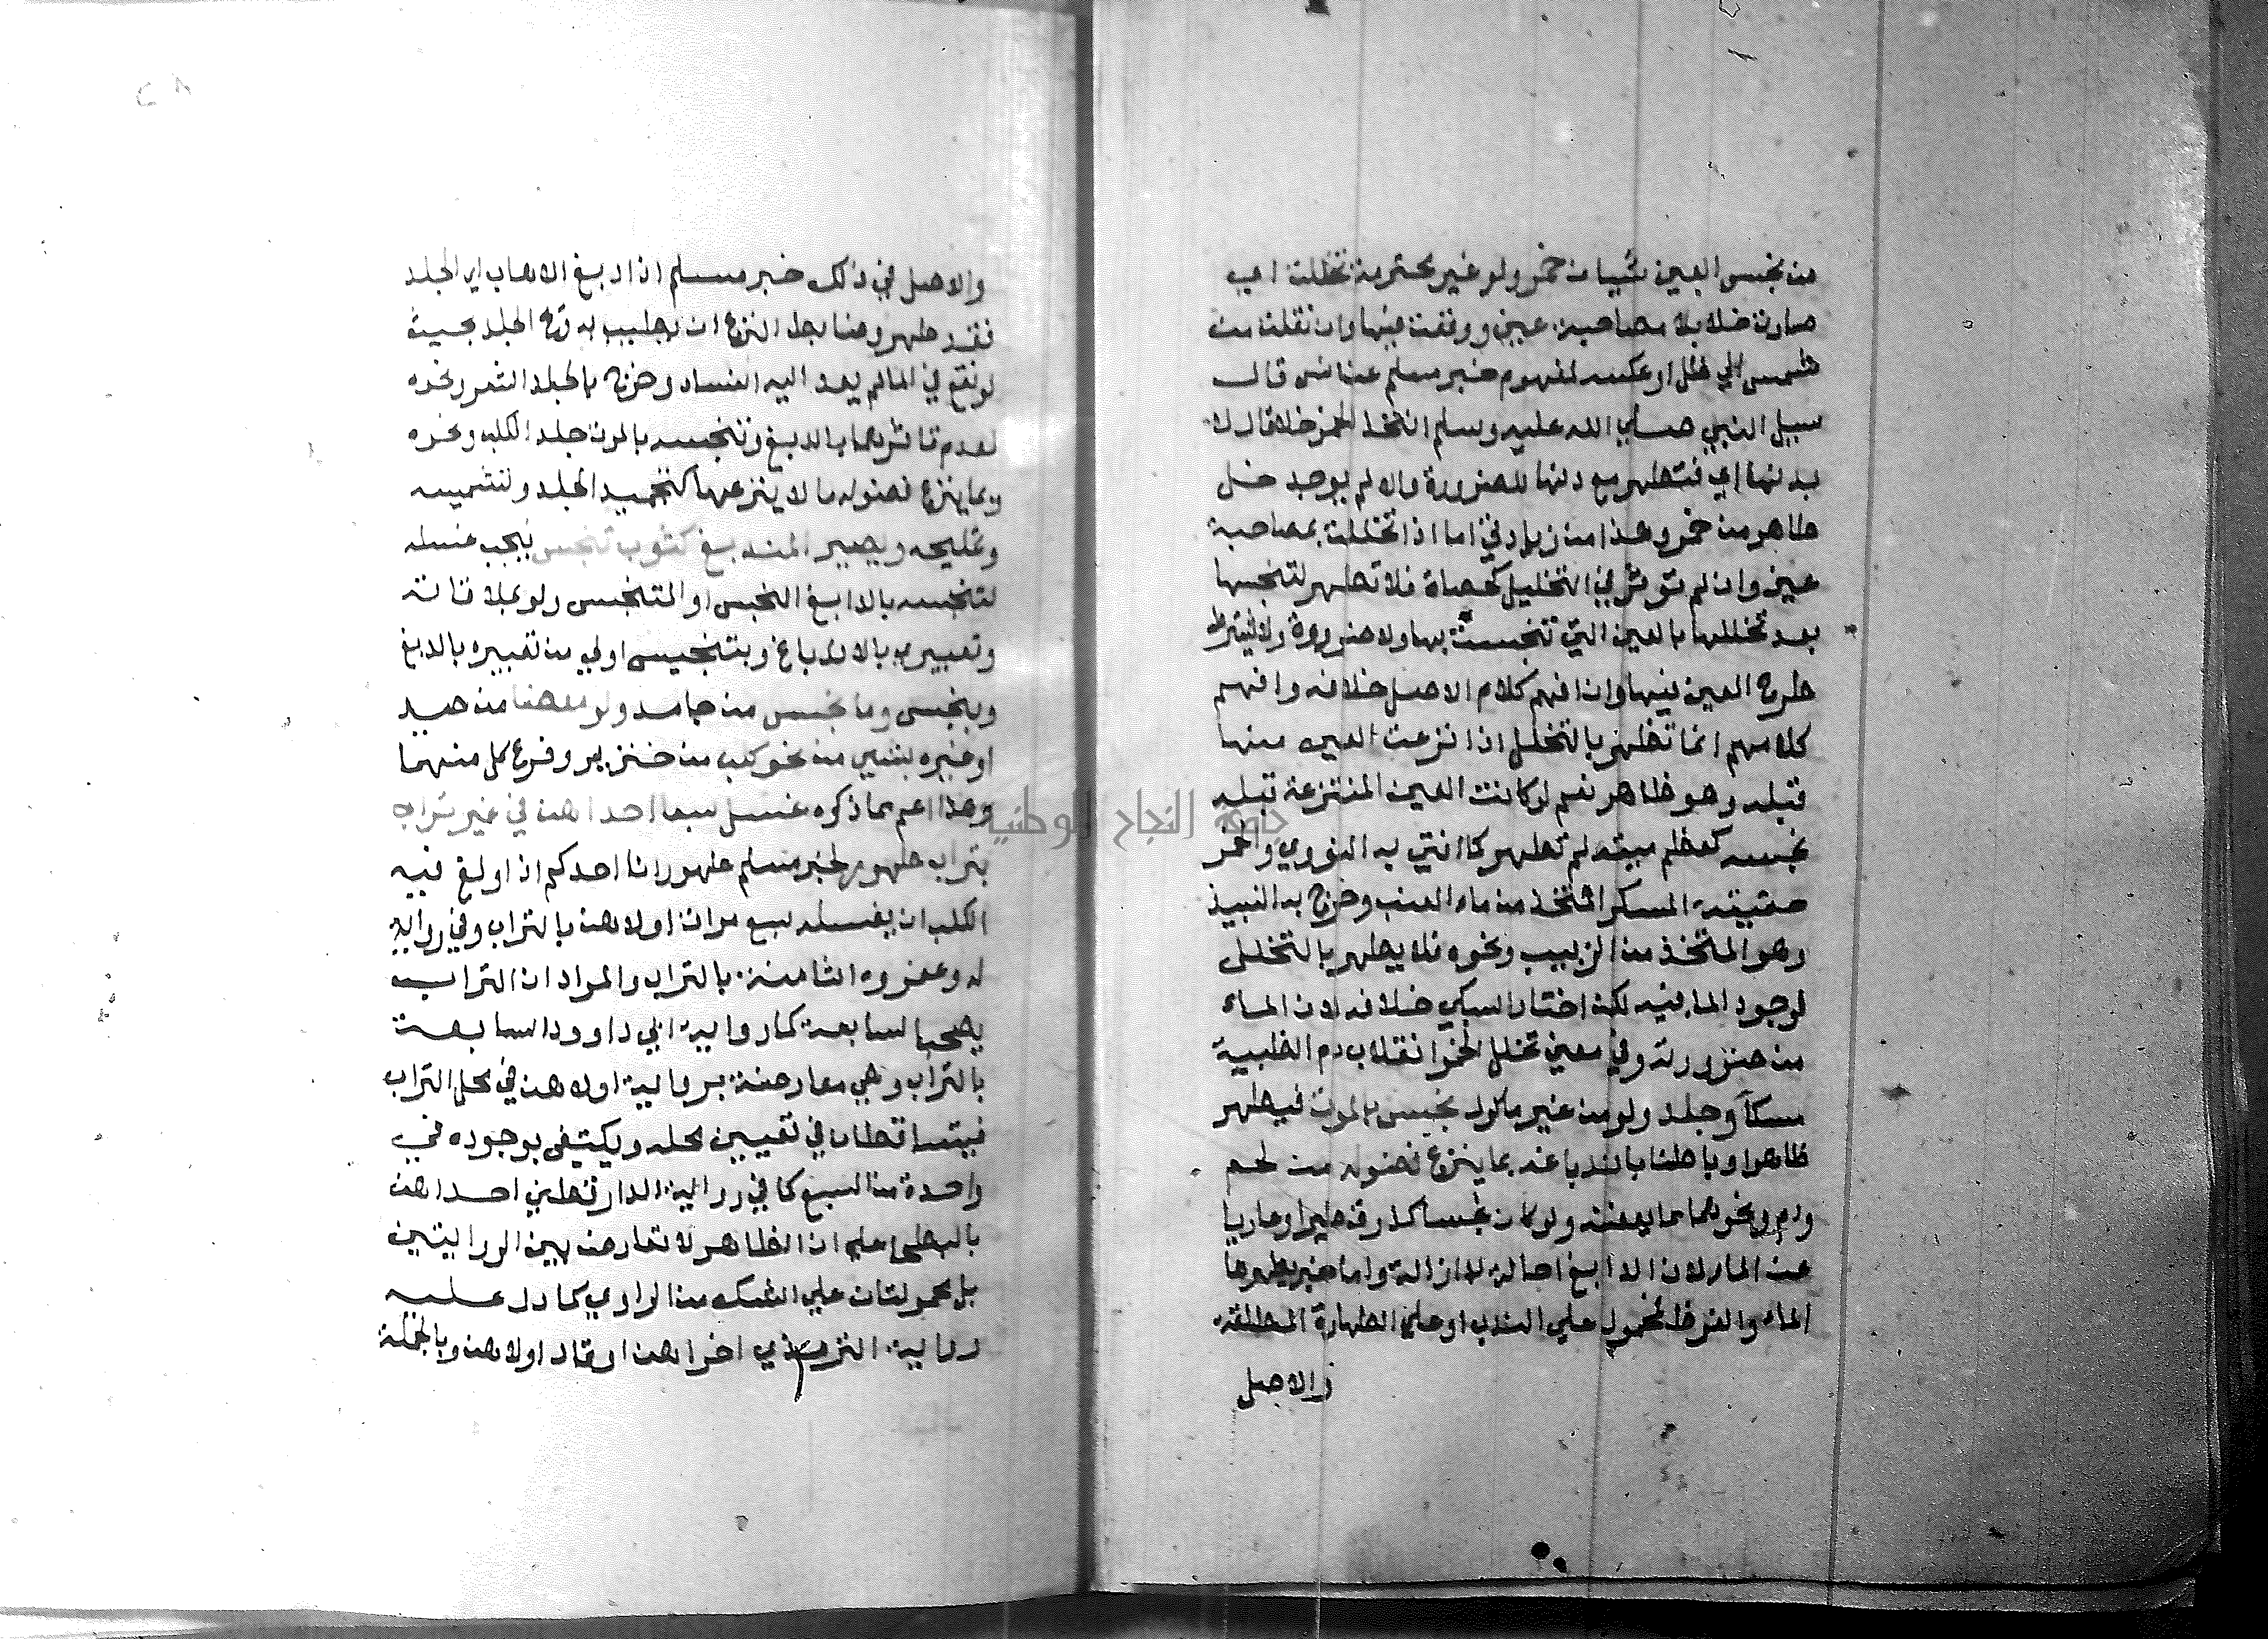 من نجس العين شيان خمر ولو غير محترمة تخللت اي
صارت خلا بلا مصاحبة عين ووقعت فيها وان نقلت من
شمس الي ظل او عكسه لمفهوم خبر مسلم عن انس قال
سيل النبي صلي الله عليه وسلم انتخذ الخمر خلا قال لا
بدنها اي فتطهر مع دنها للضرورة والا لم يوجد خل
طاهر من خمر وهذا من زيادتي اما اذا تخللت بمصاحبة
عين وان لم توثر في التخليل كحصاة فلا تطهر لتنجسها
بعد تخللها بالعين التي تنجست بها ولا ضرورة ولا يشترط
طرح العين فيها وان افهم كلام الاصل خلافه وافهم
كلامهم انها تطهر بالتخلل اذا نزعت العين منها
قبله وهو ظاهر نعم لو كانت العين المنتزعة قبله
نجسه كعظم ميته لم تطهر كما افتي به النووي والخمر
حقيقة المسكر المتخذ من ماء العنب وخرج به النبيذ
وهو المتخذ من الزبيب ونحوه فلا يطهر بالتخلل
لوجود الما فيه لكن اختار السبكي خلافه لان الماء
من ضرورته وفي معني تخلل الخمر انقلاب دم الظبية
مسكا وجلد ولو من غير ماكول نجس بالموت فيطهر
ظاهرا وباطنا باندباغه بما ينزع فضوله من لحم
ودم ونحوهما مما يعفنه ولو كان نجسا كذرق طير او عاريا
عن الما لان الدابغ احالة لا ازالة واما خبر يطهرها
الماء والقرظ فمحمول علي الندب او علي الطهارة المطلقه
والاصل
والاصل في ذلك خبر مسلم اذا دبغ الاهاب اي الجلد
فقد طهر وضابط النزع ان يطيب به ريح الجلد بحيث
لو نقع في الما لم يعد اليه الفساد وخرج بالجلد الشعر ونحوه
لعدم تاثرهما بالدبغ وتنجسه بالموت جلد الكلب ونحوه
وبما ينزع فضوله ما لا ينزعها كتجميد الجلد وتشميسه
وتمليحه ويصير المندبغ كثوب تنجس فيجب غسله
لتنجسه بالدابغ النجس او المتنجس ولو بملاقاته
وتعبيري بالاندباغ وبتنجيس اولي من تعبيره بالدبغ
وبنجس وما نجس من جامد ولو معضا من صيد
او غيره بشيي من نحو كلب من خنزير وفرع كل منهما
وهذا اعم مما ذكره غسل سبعا احداهن في غير تراب
بتراب طهور لخبر مسلم طهور انا احدكم اذا ولغ فيه
الكلب ان يغسله سبع مرات اولاهن بالتراب وفي رواية
له وعفروه الثامنة بالتراب والمراد ان التراب
يصحب السابعة كما رواية ابي داوود السابعة
بالتراب وهي معارضة برواية اولاهن في محل التراب
فيتساقطان في تعيين محله ويكتفي بوجوده في
واحدة من السبع كما في رواية الدارقطني احداهن
بالبطحا علي ان الظاهر لا تعارض بين الروايتين
بل محمولتان علي الشك من الراوي كما دل عليه
رواية الترمذي اخراهن او قال اولاهن وبالجملة
جامعة النجاح الوطنية